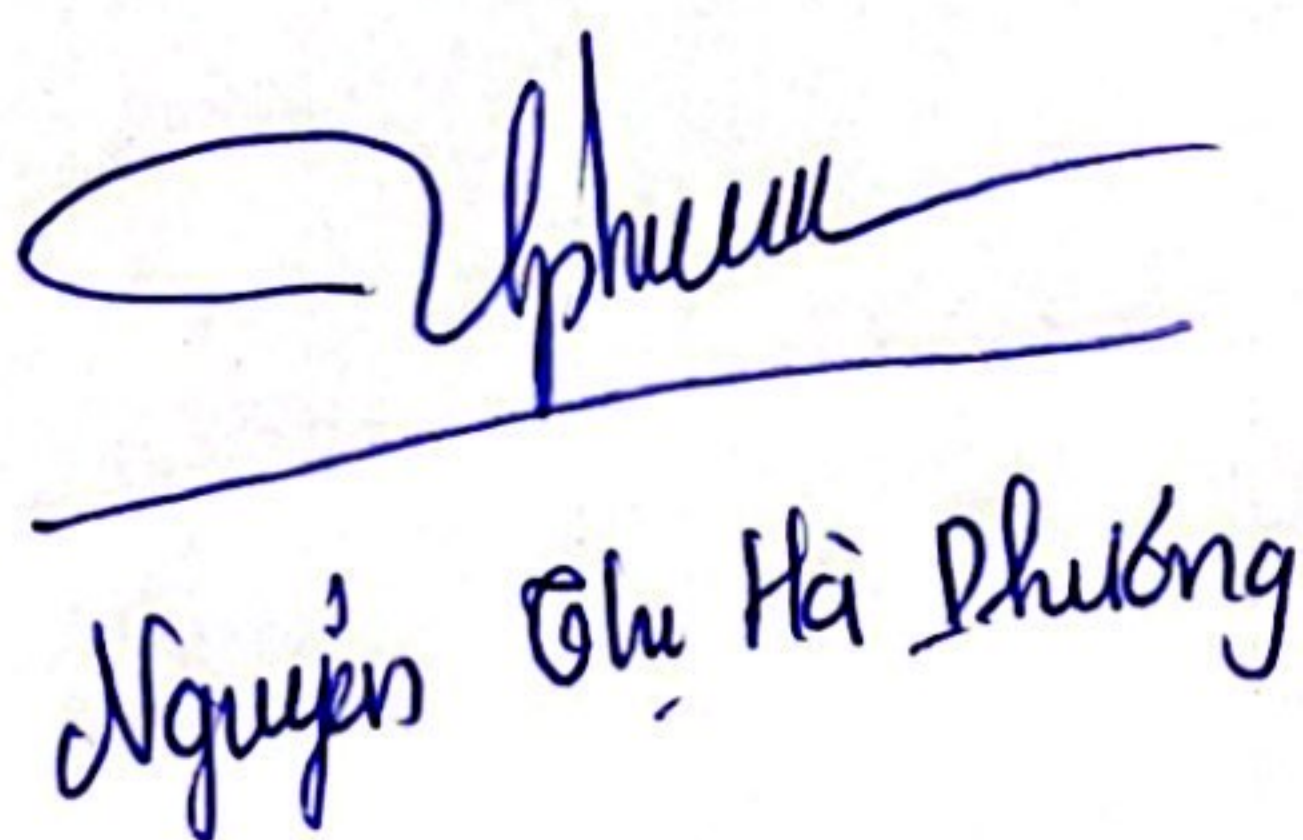 Nguyễn Thị Hà Phương